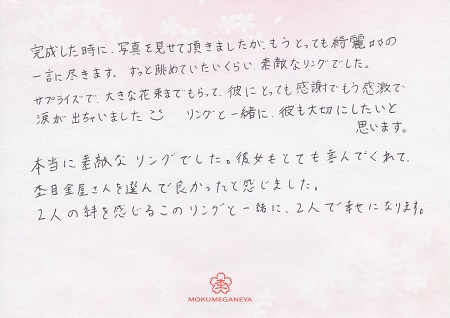 完成した時に、写真を見せて頂きましたが、もうとっても綺麗の
一言に尽きます。ずっと眺めていたいくらい素敵なリングでした。
サプライズで、大きな花束までもらって、彼にとっても感謝でもう感激で
涙が出ちゃいました リングと一緒に、彼も大切にしたいと
思います。
本当に素敵なリングでした。彼女もとても喜んでくれて、
杢目金屋さんを選んで良かったと感じました。
2人の絆を感じるこのリングと一緒に、2人で幸せになります。
MOKUMEGANEYA